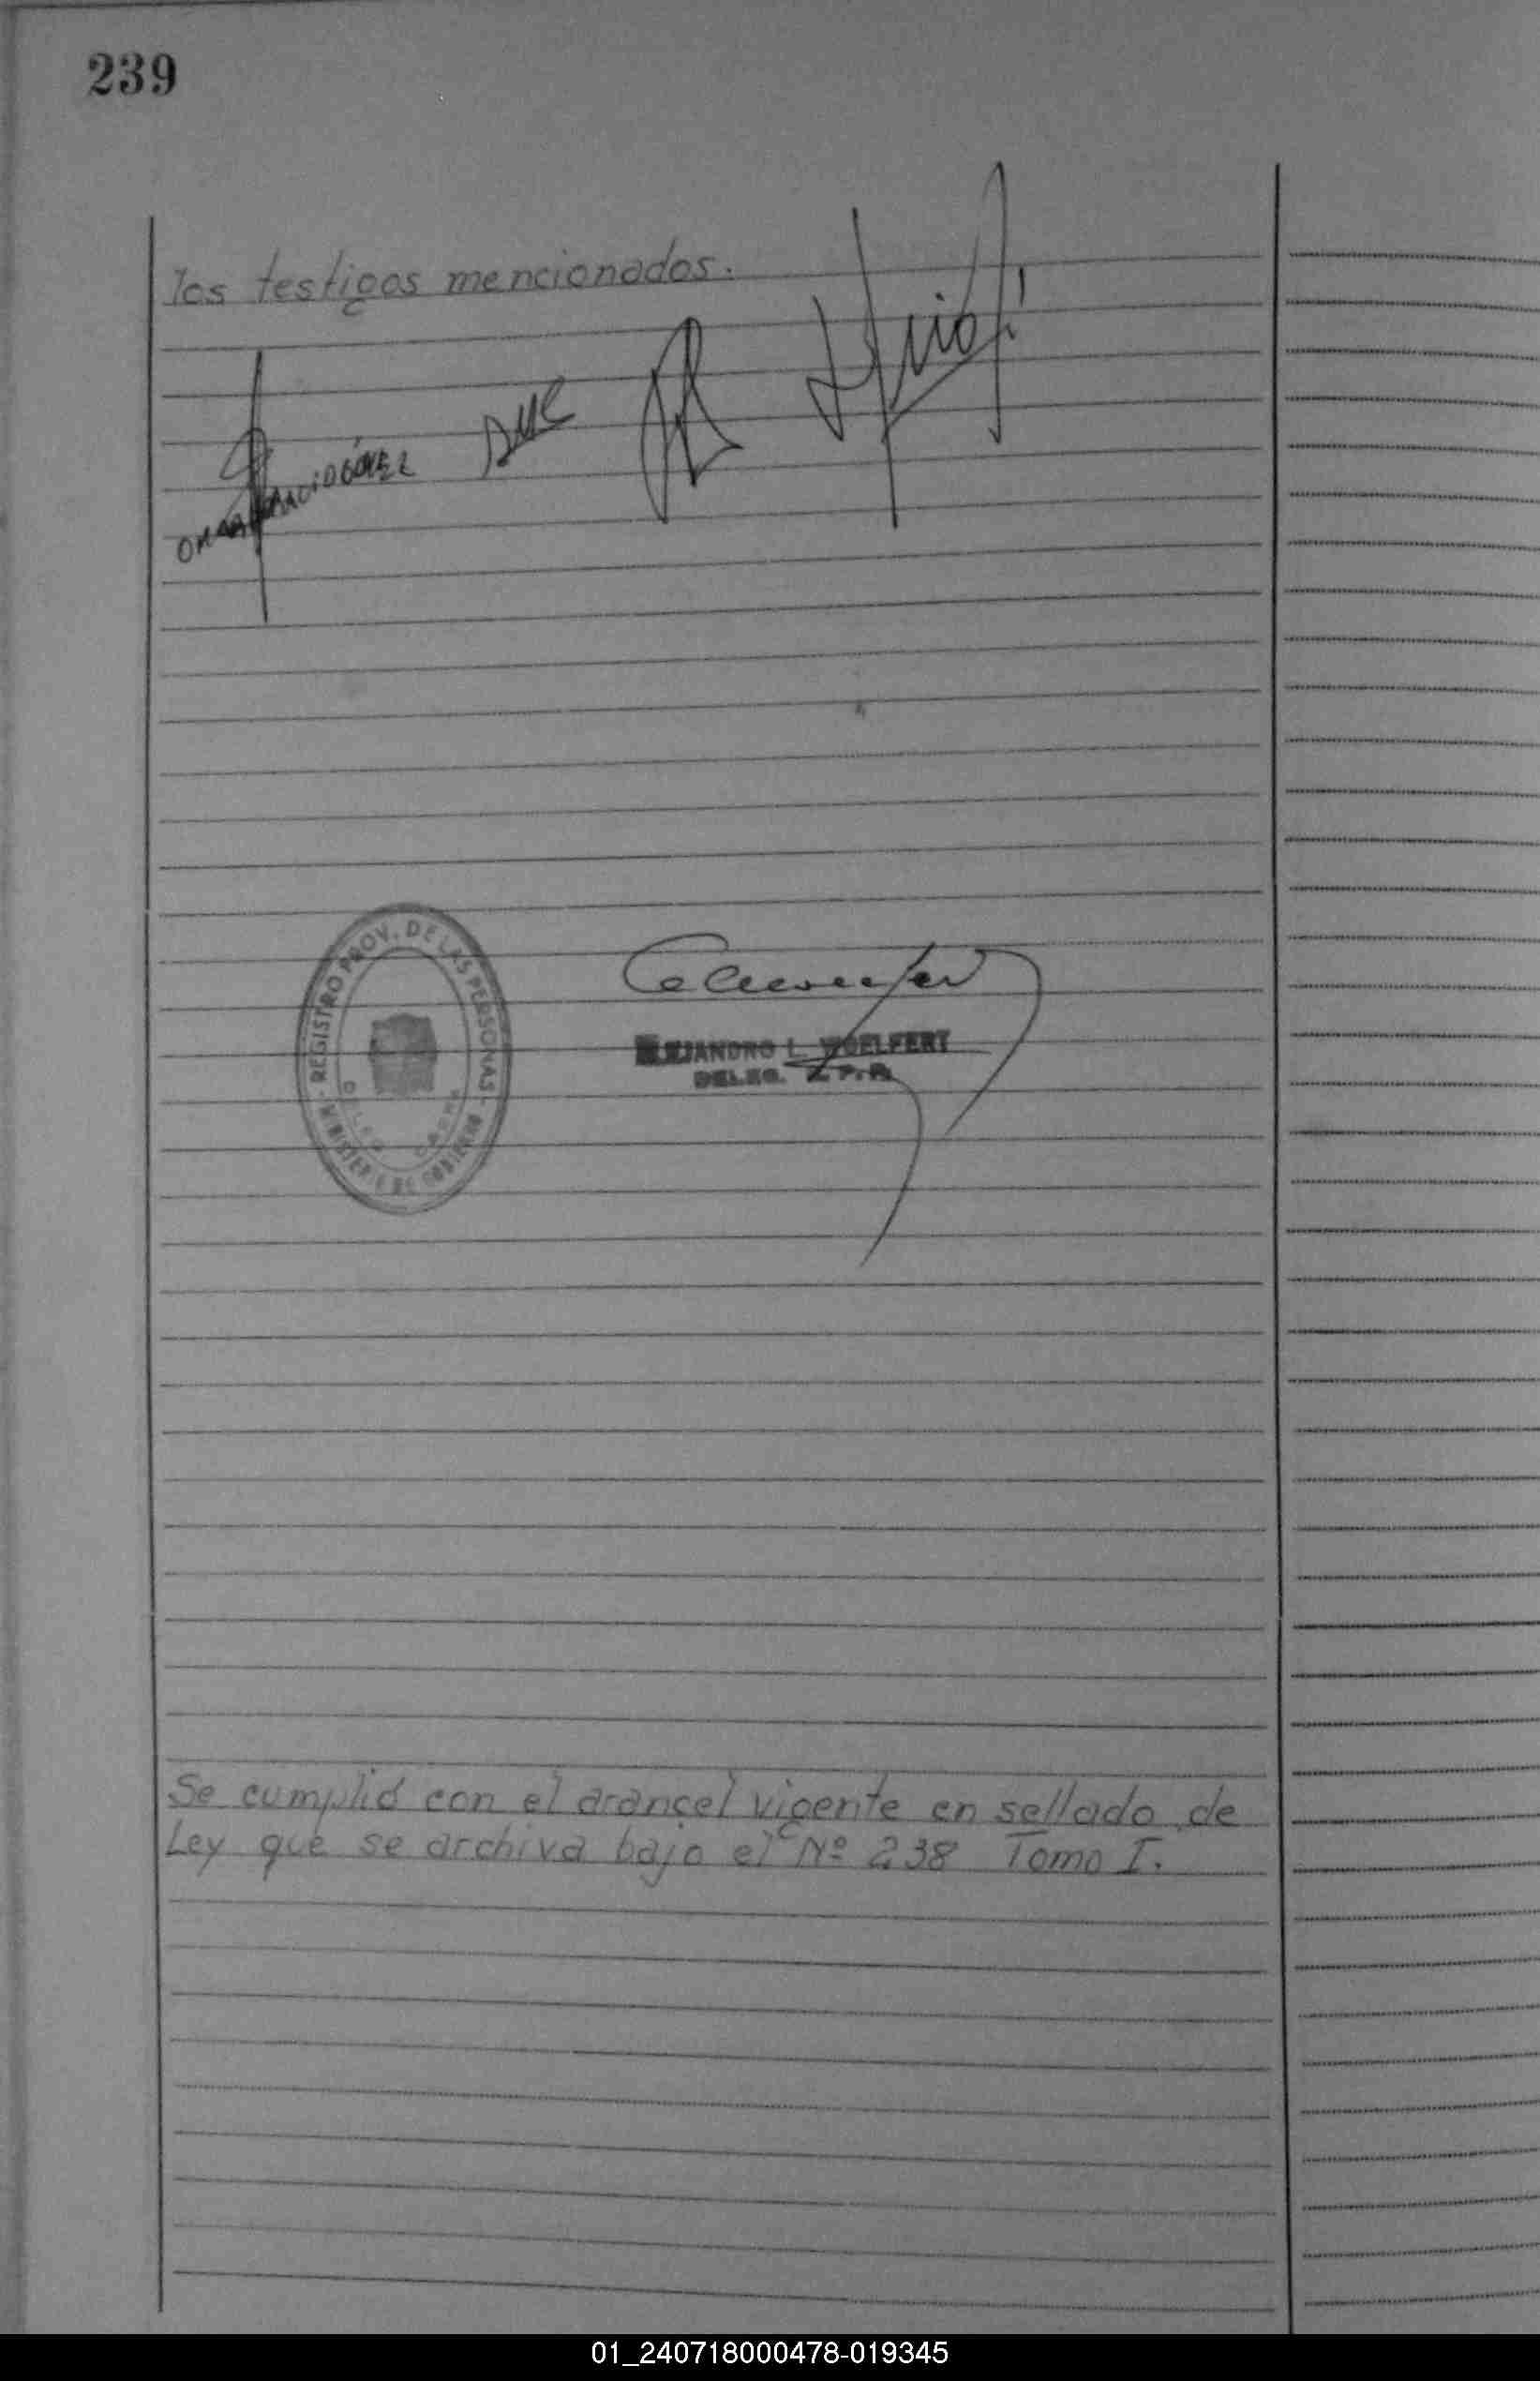 239
los testigos mencionados.
REGISTRO PROV. DE LAS PERSONAS
MINISTERIO DE GOBIERNO
ALEJANDRO L. WOELFERT
DELEG.
Se cumplió con el arancel vigente en sellado de
Ley que se archiva bajo el Nº 238 Tomo I.
01_240718000478-019345